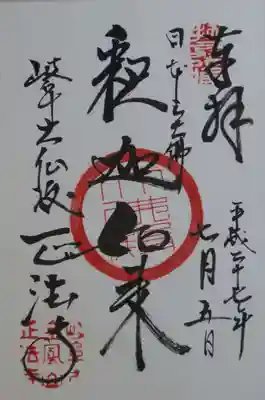 奉拝
平成二十七年
七月五日
日本三大佛
釈迦如来
岐阜大仏殿
正法寺